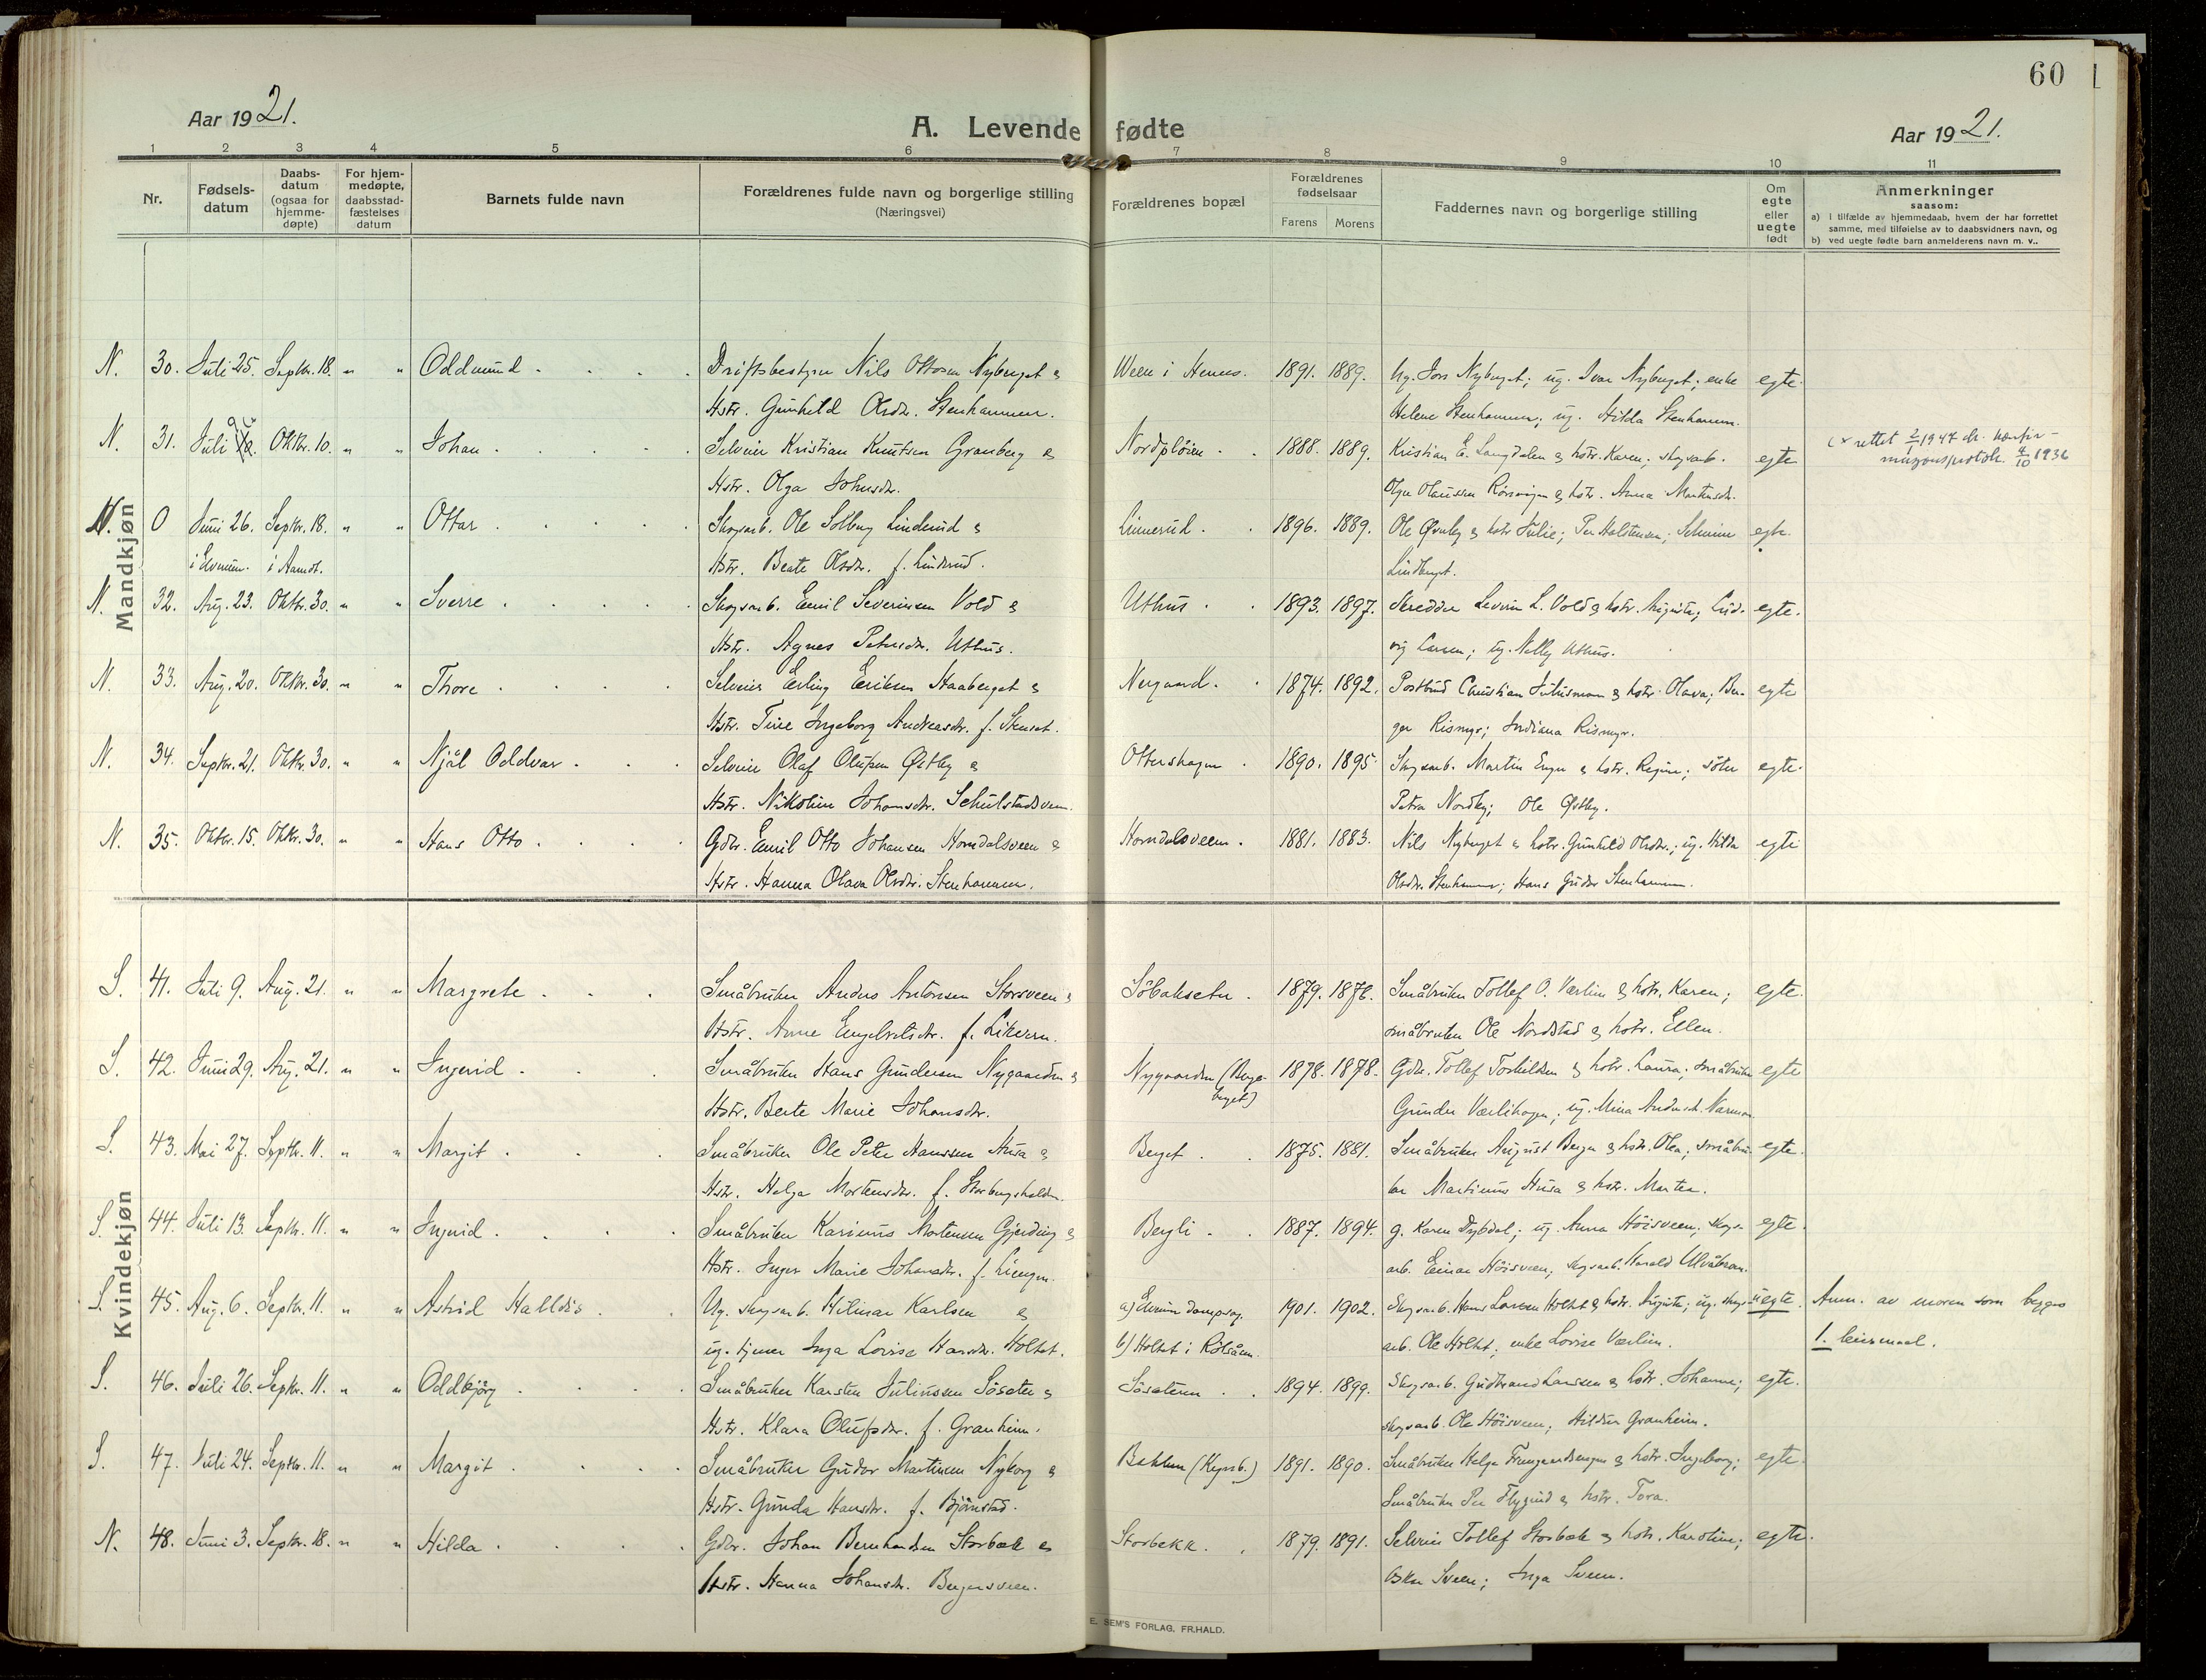 60
Aar 1921.
A. Levende fødte
Aar 1921.
1 2 3 4 5 6 7 8 9 10 11
Nr.
Fødsels-
datum
Daabs-
datum
(ogsaa for
hjemme-
døpte)
For hjem-
medøpte,
daabsstad-
fæstelses
datum
Barnets fulde navn
Forældrenes fulde navn og borgerlige stilling
(Næringsvei)
Forældrenes bopæl
Forældrenes
fødselsaar
Farens Morens
Faddernes navn og borgerlige stilling
Om
egte
eller
uegte
født
Anmerkninger
saasom:
a) i tilfælde av hjemmedaab, hvem der har forrettet
samme, med tilføielse av to daabsvidners navn, og
b) ved uegte fødte barn anmelderens navn m. v..
Mandkjøn
N. 30. Juli 25. Septbr. 18. " " Oddmund Driftsbestyrer Nils Ottosen Nyberget & 1891. 1889. Ug. Jors Nyberget; ug. Ivar Nyberget; enke egte.
Hstr. Gunhild Olsdr. Stenhammer. Helene Stenhammer; ug. Hilda Stenhammer.
N. 31. Juli Oktbr. 10. " " Johan Selveier Kristian Knutsen Granberg & Nordpløien 1888. 1889. Kristian E. Langdalen & hstr. Karen; skogsarb. egte
rettet 2/1 1947
Hstr. Olga Johnsdr. Olaussen & hstr. Anna
1936
N. 0 Juni 26. Septbr. 18. " " Ottar Skogsarb. Ole Solberg Linderud & Linnerud 1896. 1889. Ole & hstr. Julie; Per Halstensen; egte.
i Elverum. i Aamot. Hstr. Beate Olsdr. f. Linderud. Lindberget.
N. 32. Aug. 23. Oktbr. 30. " " Sverre Skogsarb. Emil Severinsen Vold & Uthus 1893. 1897. Skredder Severin L. Vold & hstr. Augusta; Lud- egte.
Hstr. Agnes Petersdr. Uthus. vig Larsen; ug. Nelly Uthus.
N. 33. Aug. 20. Oktbr. 30. " " Thore Selveier Erling Eriksen Haaberget & Nergaard. 1874. 1892. Postbud Christian Juliusmoen & hstr. Olava; Bir- egte
Hstr. Tine Ingeborg Andreasdr. f. Stenset. ger Rismyr; Jordiana Rismyr.
N. 34. Septbr. 21. Oktbr. 30. " " Njål Oddvar Selveier Olaf Olufsen Østby & Ottershagen 1890. 1895. Skogsarb. Martin Enger & hstr. Regine; egte.
Hstr. Nikoline Johansdr. Schulstadsveen. Petra Nordby; Ole Østby.
N. 35. Oktbr. 15. Oktbr. 30. " " Hans Otto Gdbr. Emil Otto Johansen Horndalsveen & Horndalsveen. 1881. 1883. Nils Nyberget & hstr. Gunhild Olsdr.; ug. Hilda egte
Hstr. Hanna Olava Olsdr. Stenhammer. Olsdr. Stenhammer; Hans Gudor Stenhammer.
Kvindekjøn
S. 41. Juli 9. Aug. 21. " " Margrete Småbruker Anders Antonsen Storsveen & Söbaksetr. 1879. 1876. Småbruker Tollef O. Værlien & hstr. Karen; egte.
Hstr. Anne Engebretsdr. f. Likvern. småbruker Ole Nordstad & hstr. Ellen.
S. 42. Juni 29. Aug. 21. " " Ingerid Småbruker Hans Gundersen Nygaarden & Nygaarden (Berge- 1878. 1878. Gdbr. Tollef Torkildsen & hstr. Laura; småbruker egte
berget)
Hstr. Berte Marie Johansdr. Gunder Værlihagen; ug. Mina
S. 43. Mai 27. Septbr. 11. " " Margit Småbruker Ole Peter Hanssen Husa & Berget 1875. 1881. Småbruker August Berger & hstr. Olea; småbru- egte.
Hstr. Helga Mortensdr. f. Storbergshalden. ker Martinus Husa & hstr. Martea.
S. 44. Juli 13. Septbr. 11. " " Ingerid Småbruker Karinus Mortensen Gjerding & Bergli 1887. 1894. g. Karen Dybdal; ug. Anna Höisveen; skogs- egte.
Hstr. Inger Marie Johansdr. f. arb. Einar Höisveen; skogsarb. Harald Ulvåbraa.
S. 45. Aug. 6. Septbr. 11. " " Astrid Halldis Ug. skogsarb. Hilmar Karlsen & a) Elverum dampsag. 1901. 1902. Skogsarb. Hans Larsen Holtet & hstr. Augusta; ug. skogs- uegte. Anm. av moren som begges
ug. tjener Inga Lovise Hansdr. Holtet. b) Holtet i Rölsåsen. arb. Ole Holtet; enke Lovise Værlien. 1. leiermaal.
S. 46. Juli 26. Septbr. 11. " " Oddbjörg Småbruker Karsten Juliussen Söseter & Söseteren 1894. 1899. Skogsarb. Gudbrand Larssen & hstr. Johanne; egte.
Hstr. Klara Olufsdr. f. Granheim. skogsarb. Ole Höisveen; Hildur Granheim.
S. 47. Juli 24. Septbr. 11. " " Margit Småbruker Gudor Martinsen Nyborg & Bakken 1891. 1890. Småbruker Helge & hstr. Ingeborg; egte.
Hstr. Gunda Hansdr. f. Bjørnstad. Småbruker Per Flygind & hstr. Tora.
N. 48. Juni 3. Septbr. 18. " " Hilda Gdbr. Johan Bernhardsen Storbæk & Storbekk. 1879. 1891. Selveier Tollef Storbæk & hstr. Karoline; egte.
Hstr. Hanna Johansdr. Bergersveen. Oskar Sveen; Inga Sveen.
E. SEM'S FORLAG, FR.HALD.